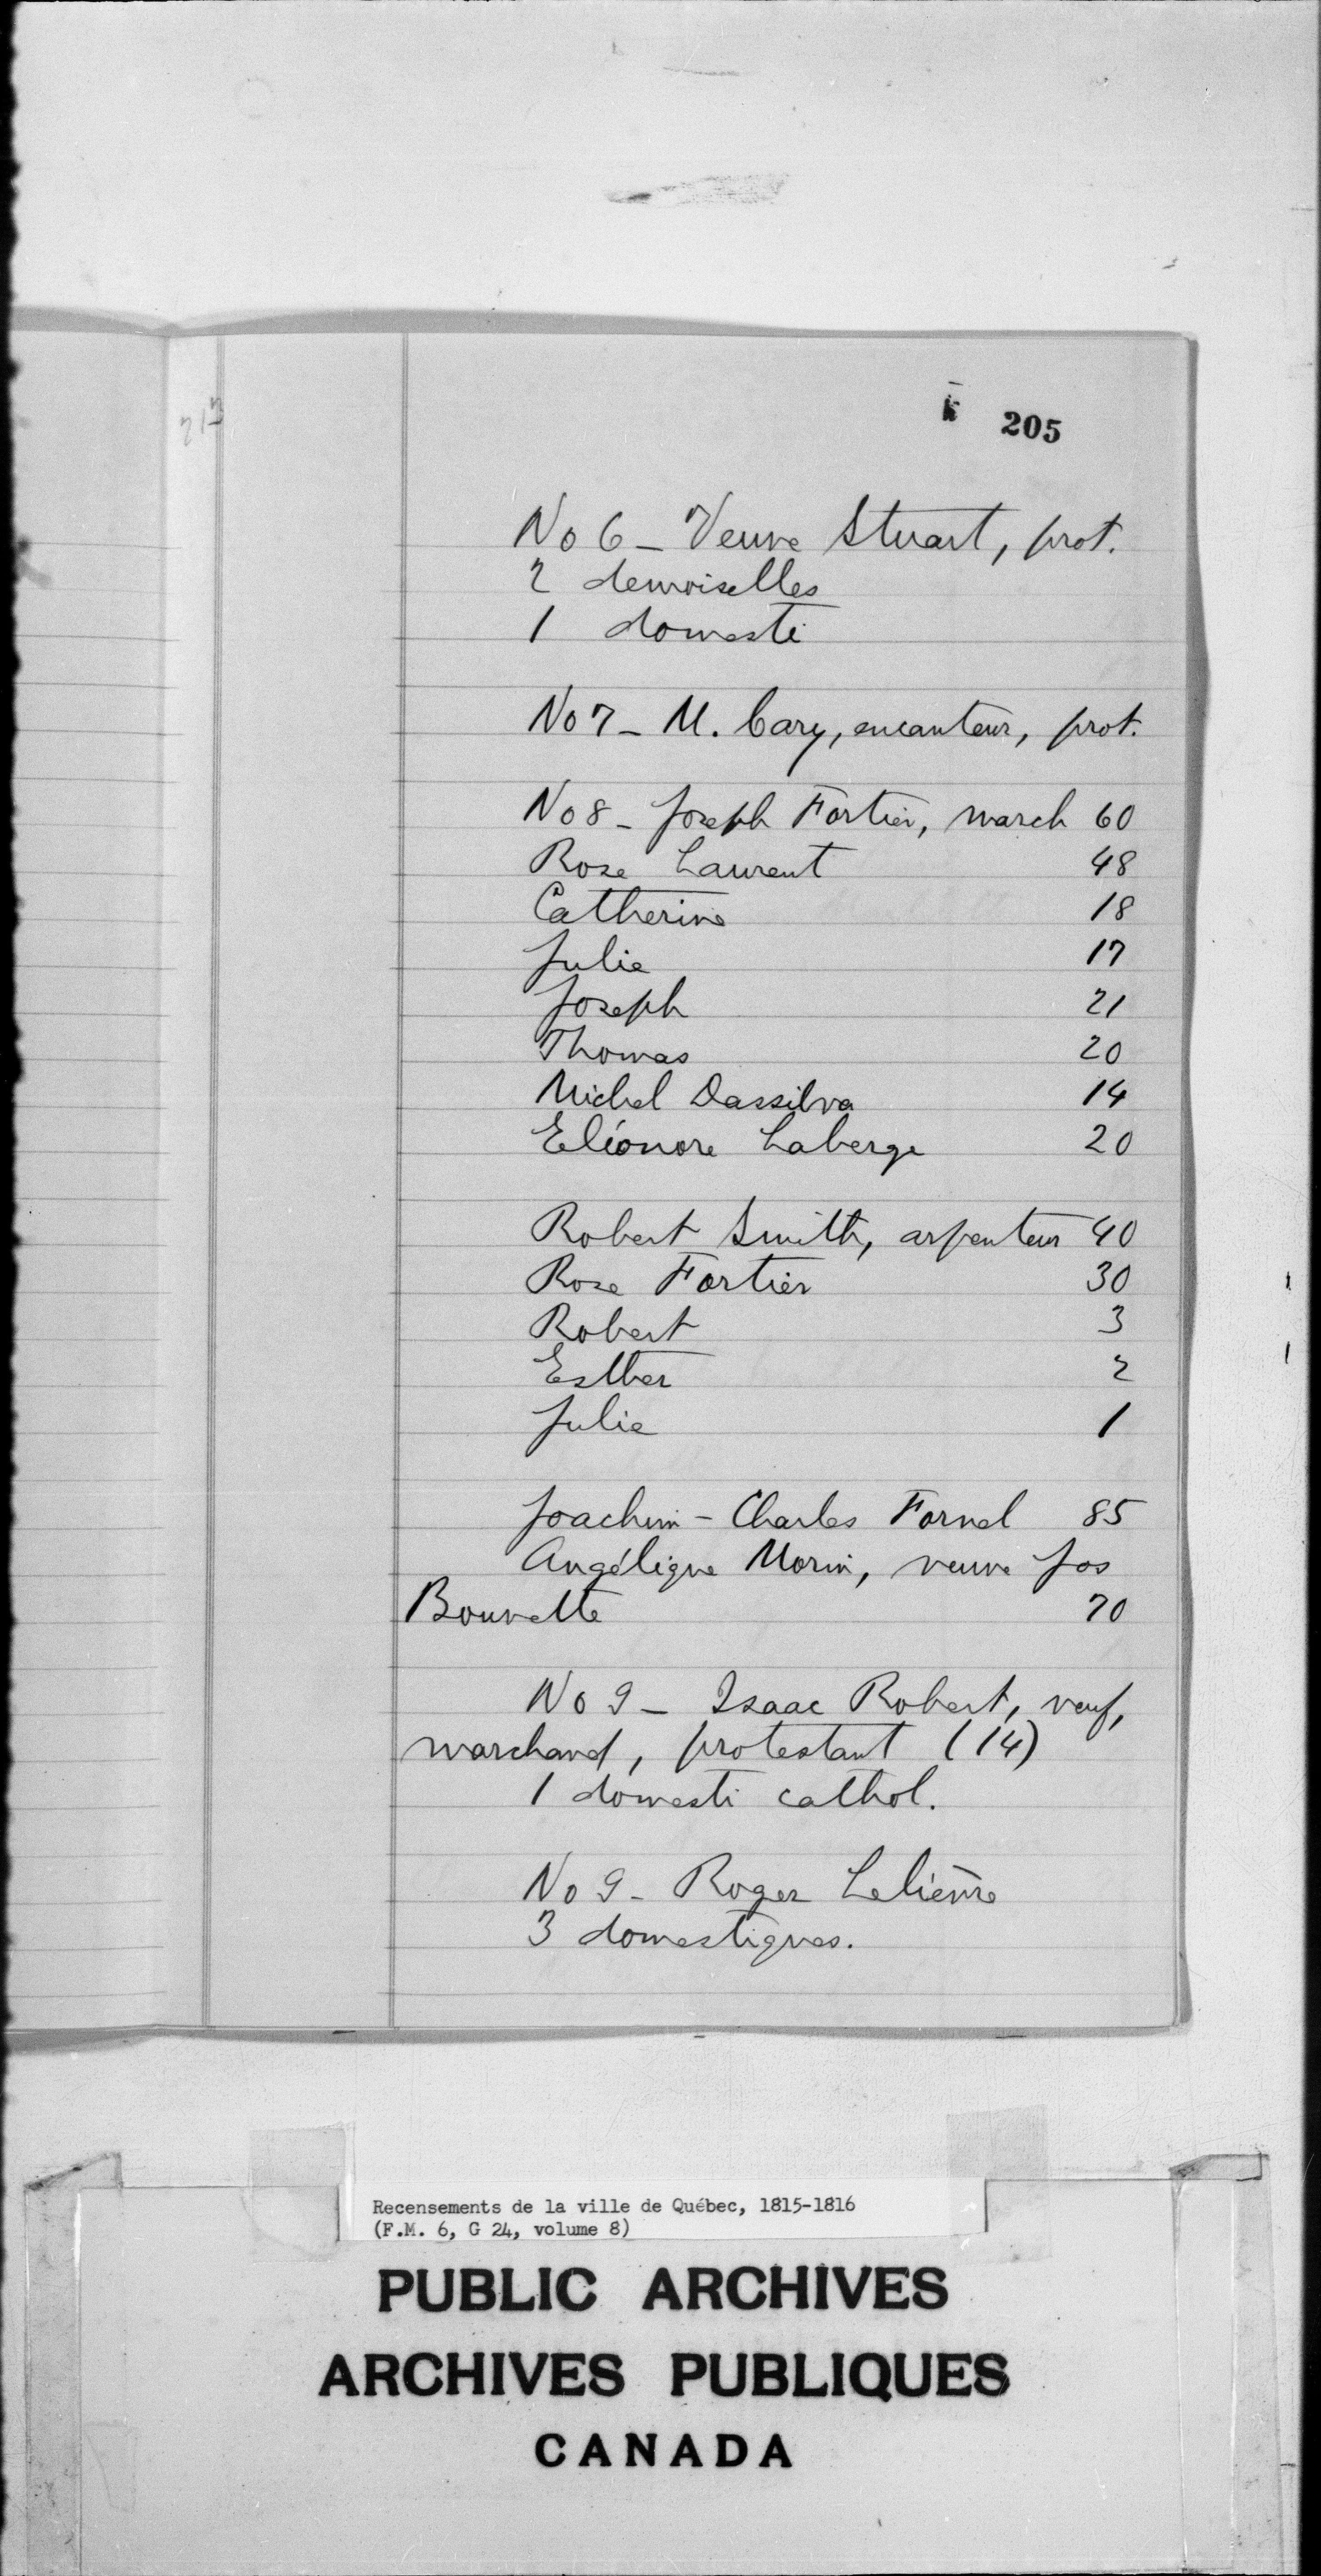 205
213
No 6 - Veuve Stuart, prot.
2 demoiselles
1 domesti
No 7 - M. Cary, encanteur, prot.
No 8 - Joseph Fortier, march 60
Rose Laurent 48
Catherine 18
Julie 17
Joseph 21
Thomas 20
Michel Dassilva 14
Eléonore Laberge 20
Robert Smith, arpenteur 40
Rose Fortier 30
Robert 3
Esther 2
Julie 1
Joachim - Charles Fornel 85
Angélique Morin, veuve Jos
Bouvette 70
No 9 - Isaac Robert, veuf,
marchand, protestant (14)
1 domesti cathol.
No 9 - Roger Lelièvre
3 domestiques.
Recensements de la ville de Québec, 1815-1816
(F.M. 6, G 24, volume 8)
PUBLIC ARCHIVES
ARCHIVES PUBLIQUES
CANADA